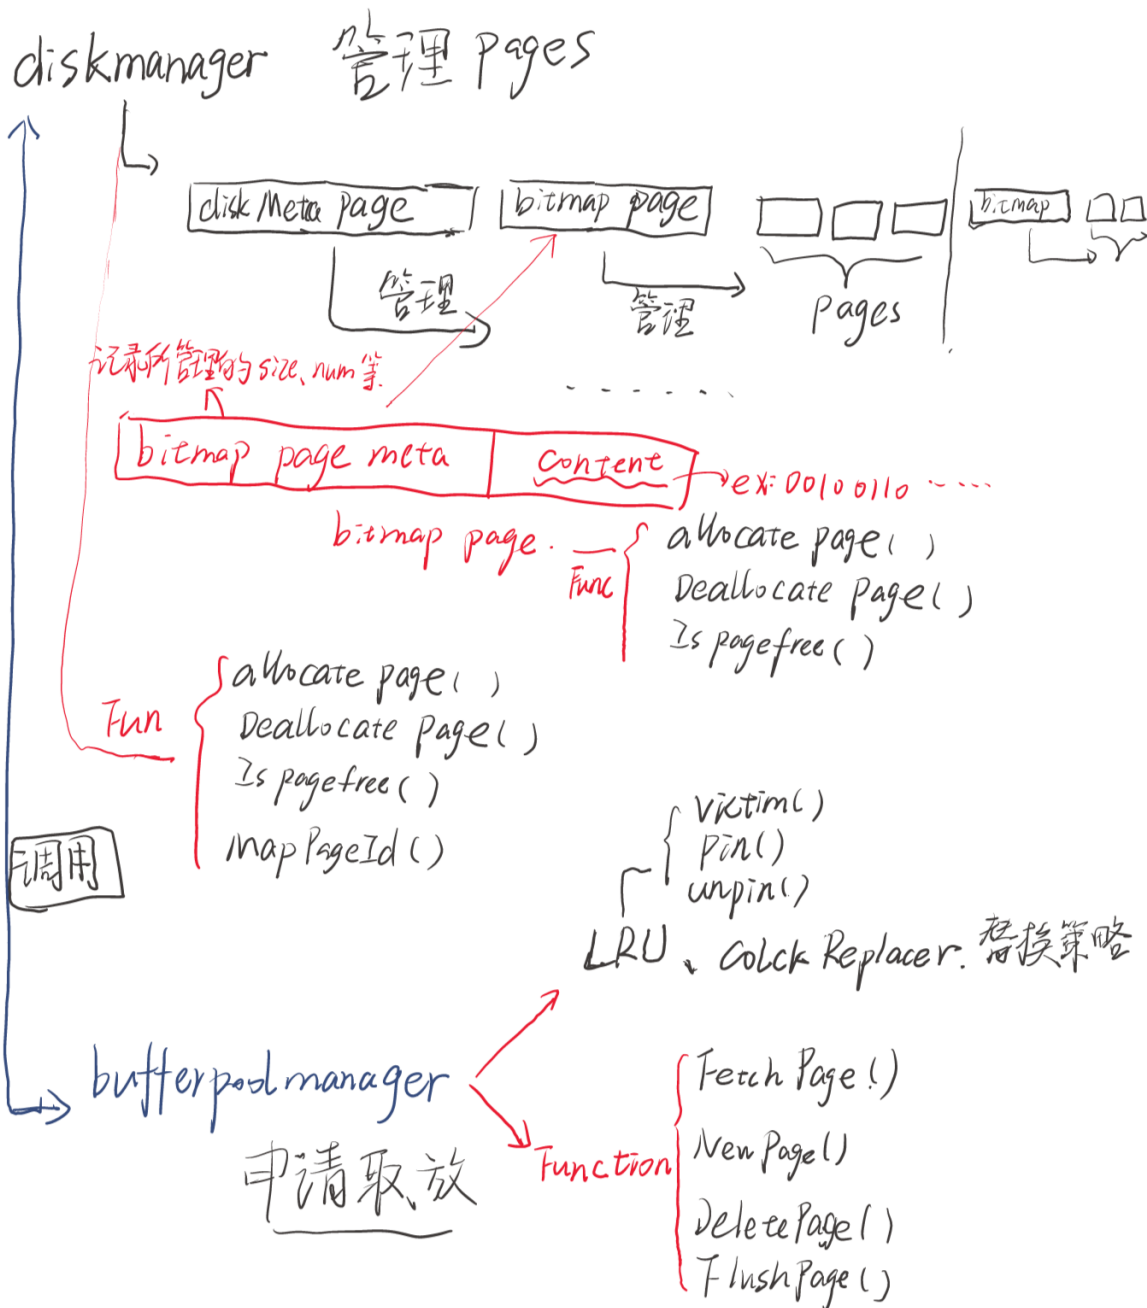 diskmanager 管理 pages
disk Meta page
bitmap page
bitmap
管理
管理
pages
记录所管理的size、num等.
.......
bitmap page meta
content
ex: 00100110 .....
bitmap page.
Func
allocate page( )
Deallocate page( )
Is pagefree( )
Fun
allocate page( )
Deallocate page( )
Is pagefree( )
Map PageId( )
调用
victim()
pin()
unpin()
LRU、Colck Replacer. 替换策略
bufferpoolmanager
申请取、放
Function
Fetch Page()
New Page()
Delete Page()
Flush Page()